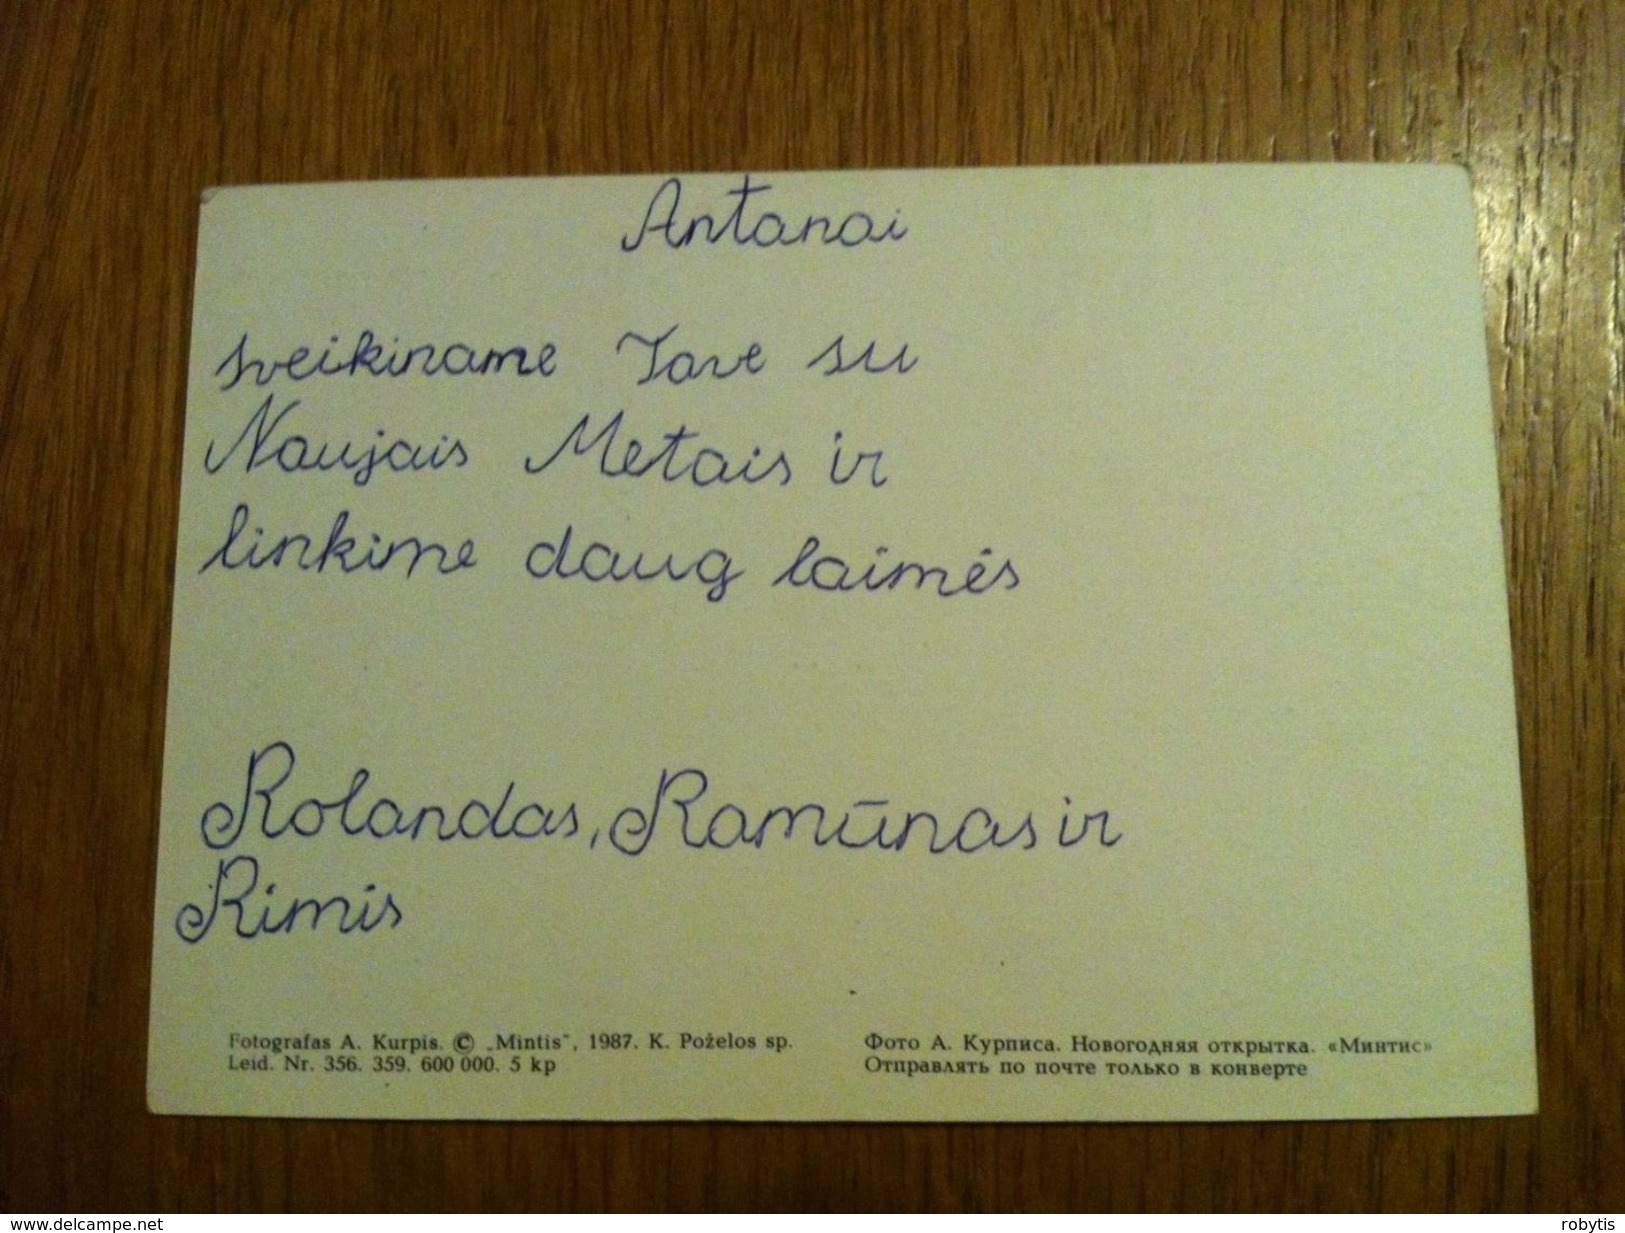 Antanai
sveikiname Tave su
Naujais Metais ir
linkime daug laimės
Rolandas, Ramūnas ir
Rimis
Fotografas A. Kurpis. © „Mintis“, 1987. K. Poželos sp.
Leid. Nr. 356. 359. 600 000. 5 kp
Фото А. Курписа. Новогодняя открытка. «Минтис»
Отправлять по почте только в конверте
www.delcampe.net
robytis